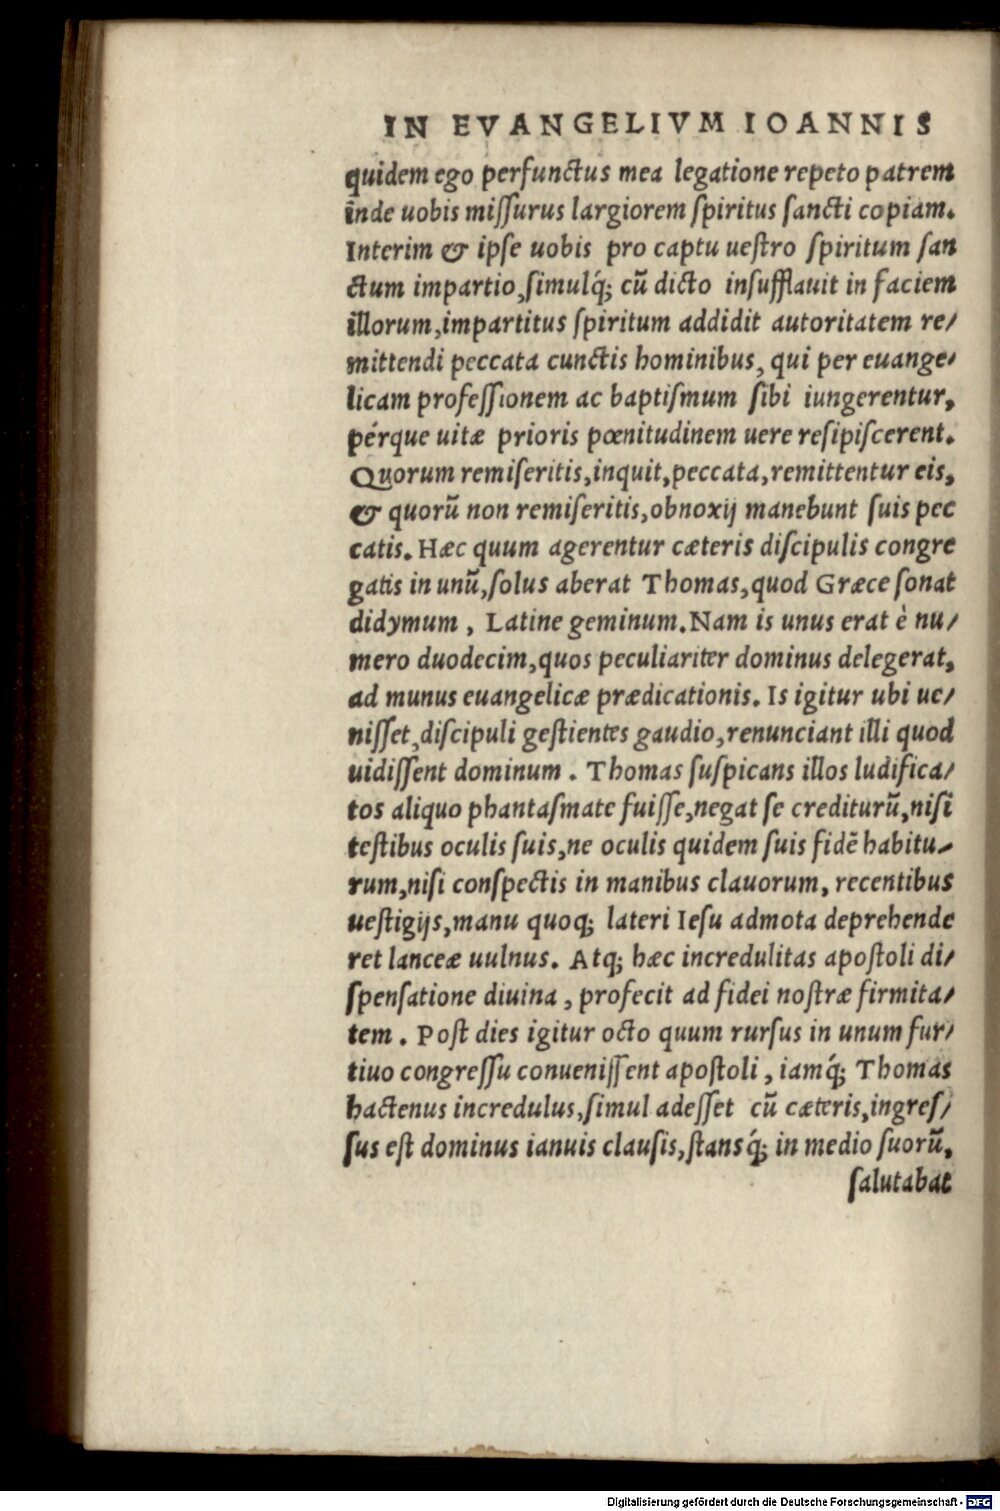 IN EVANGELIVM IOANNIS
quidem ego perfunctus mea legatione repeto patrem
inde uobis miſſurus largiorem ſpiritus ſancti copiam.
Interim & ipſe uobis pro captu ueſtro ſpiritum ſan
ctum impartio,ſimulq́; cū dicto inſufflauit in faciem
illorum,impartitus ſpiritum addidit autoritatem re/
mittendi peccata cunctis hominibus, qui per euange/
licam profeſſionem ac baptiſmum ſibi iungerentur,
pérque uitæ prioris pœnitudinem uere reſipiſcerent.
Quorum remiſeritis,inquit,peccata,remittentur eis,
& quorū non remiſeritis,obnoxij manebunt ſuis pec
catis. Hæc quum agerentur cæteris diſcipulis congre
gatis in unū,ſolus aberat Thomas,quod Græce ſonat
didymum , Latine geminum.Nam is unus erat è nu/
mero duodecim,quos peculiariter dominus delegerat,
ad munus euangelicæ prædicationis. Is igitur ubi ue/
niſſet,diſcipuli geſtientes gaudio,renunciant illi quod
uidiſſent dominum . Thomas ſuſpicans illos ludifica/
tos aliquo phantaſmate fuiſſe,negat ſe crediturū,niſi
teſtibus oculis ſuis,ne oculis quidem ſuis fidē habitu/
rum,niſi conſpectis in manibus clauorum, recentibus
ueſtigijs,manu quoq; lateri Ieſu admota deprehende
ret lanceæ uulnus. Atq; hæc incredulitas apoſtoli di/
ſpenſatione diuina , profecit ad fidei noſtræ firmita/
tem . Poſt dies igitur octo quum rurſus in unum fur/
tiuo congreſſu conueniſſent apoſtoli , iamq́; Thomas
hactenus incredulus,ſimul adeſſet cū cæteris,ingreſ/
ſus eſt dominus ianuis clauſis,ſtansq́; in medio ſuorū,
ſalutabat
Digitalisierung gefördert durch die Deutsche Forschungsgemeinschaft - DFG